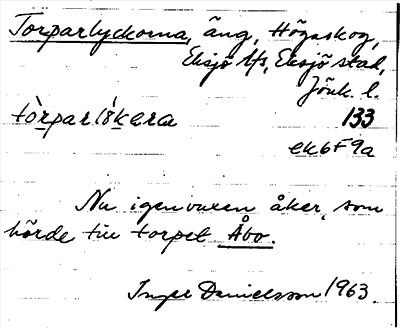 Torparlyckorna, äng, Högaskog,
Eksjö lfs, Eksjö stad,
Jönk. l.
tòrparlỳkera 133
ek6F9a
Nu igenvuxen åker, som
hörde till torpet Åbo.
Inger Danielsson 1963.